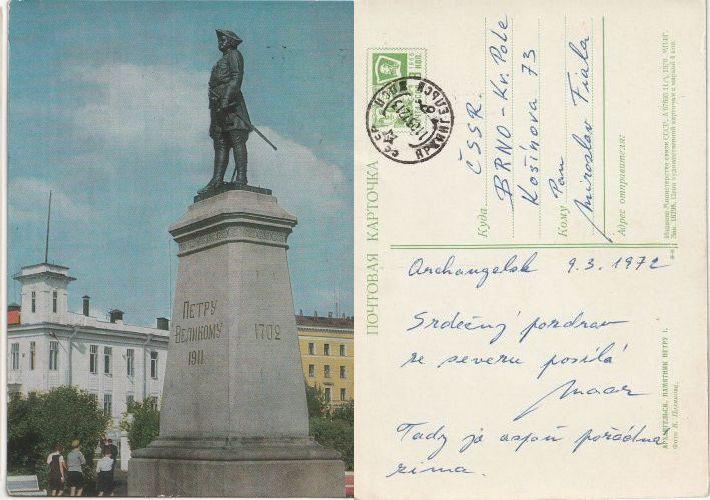 ПЕТРУ
ВЕЛИКОМУ
1911
1702
ПОЧТОВАЯ КАРТОЧКА
Куда ČSSR.
BRNO - Kr. Pole
Košinova 73
Кому Pan
Miroslav Fiala
Адрес отправителя:
Archangelsk 9.3.1972
Srdečný pozdrav
ze severu posílá
Tady je aspoň pořádná
zima.
АРХАНГЕЛЬСК. ПАМЯТНИК ПЕТРУ I.